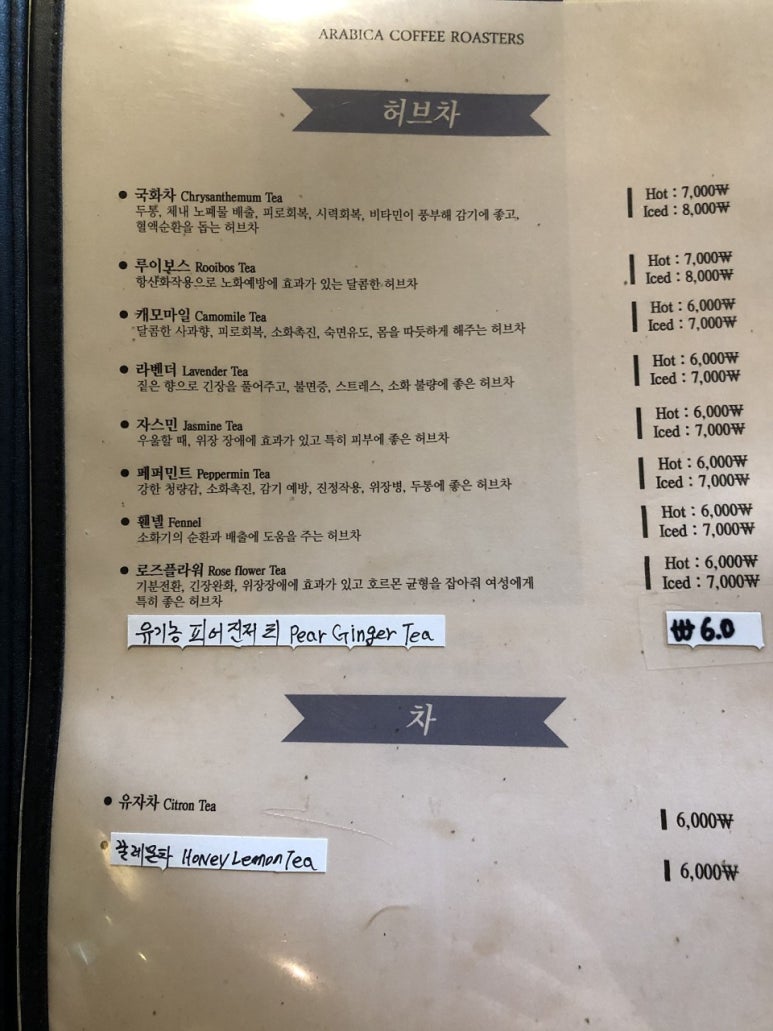 ARABICA COFFEE ROASTERS
허브차
● 국화차 Chrysanthemum Tea
두통, 체내 노폐물 배출, 피로회복, 시력회복, 비타민이 풍부해 감기에 좋고,
혈액순환을 돕는 허브차
Hot : 7,000₩
Iced : 8,000₩
● 루이보스 Rooibos Tea
항산화작용으로 노화예방에 효과가 있는 달콤한 허브차
Hot : 7,000₩
Iced : 8,000₩
● 캐모마일 Camomile Tea
달콤한 사과향, 피로회복, 소화촉진, 숙면유도, 몸을 따듯하게 해주는 허브차
Hot : 6,000₩
Iced : 7,000₩
● 라벤더 Lavender Tea
짙은 향으로 긴장을 풀어주고, 불면증, 스트레스, 소화 불량에 좋은 허브차
Hot : 6,000₩
Iced : 7,000₩
● 자스민 Jasmine Tea
우울할 때, 위장 장애에 효과가 있고 특히 피부에 좋은 허브차
Hot : 6,000₩
Iced : 7,000₩
● 페퍼민트 Peppermin Tea
강한 청량감, 소화촉진, 감기 예방, 진정작용, 위장병, 두통에 좋은 허브차
Hot : 6,000₩
Iced : 7,000₩
● 휀넬 Fennel
소화기의 순환과 배출에 도움을 주는 허브차
Hot : 6,000₩
Iced : 7,000₩
● 로즈플라워 Rose flower Tea
기분전환, 긴장완화, 위장장애에 효과가 있고 호르몬 균형을 잡아줘 여성에게
특히 좋은 허브차
Hot : 6,000₩
Iced : 7,000₩
유기농 피어진저 티 Pear Ginger Tea
₩ 6.0
차
● 유자차 Citron Tea
6,000₩
꿀레몬차 Honey Lemon Tea
6,000₩